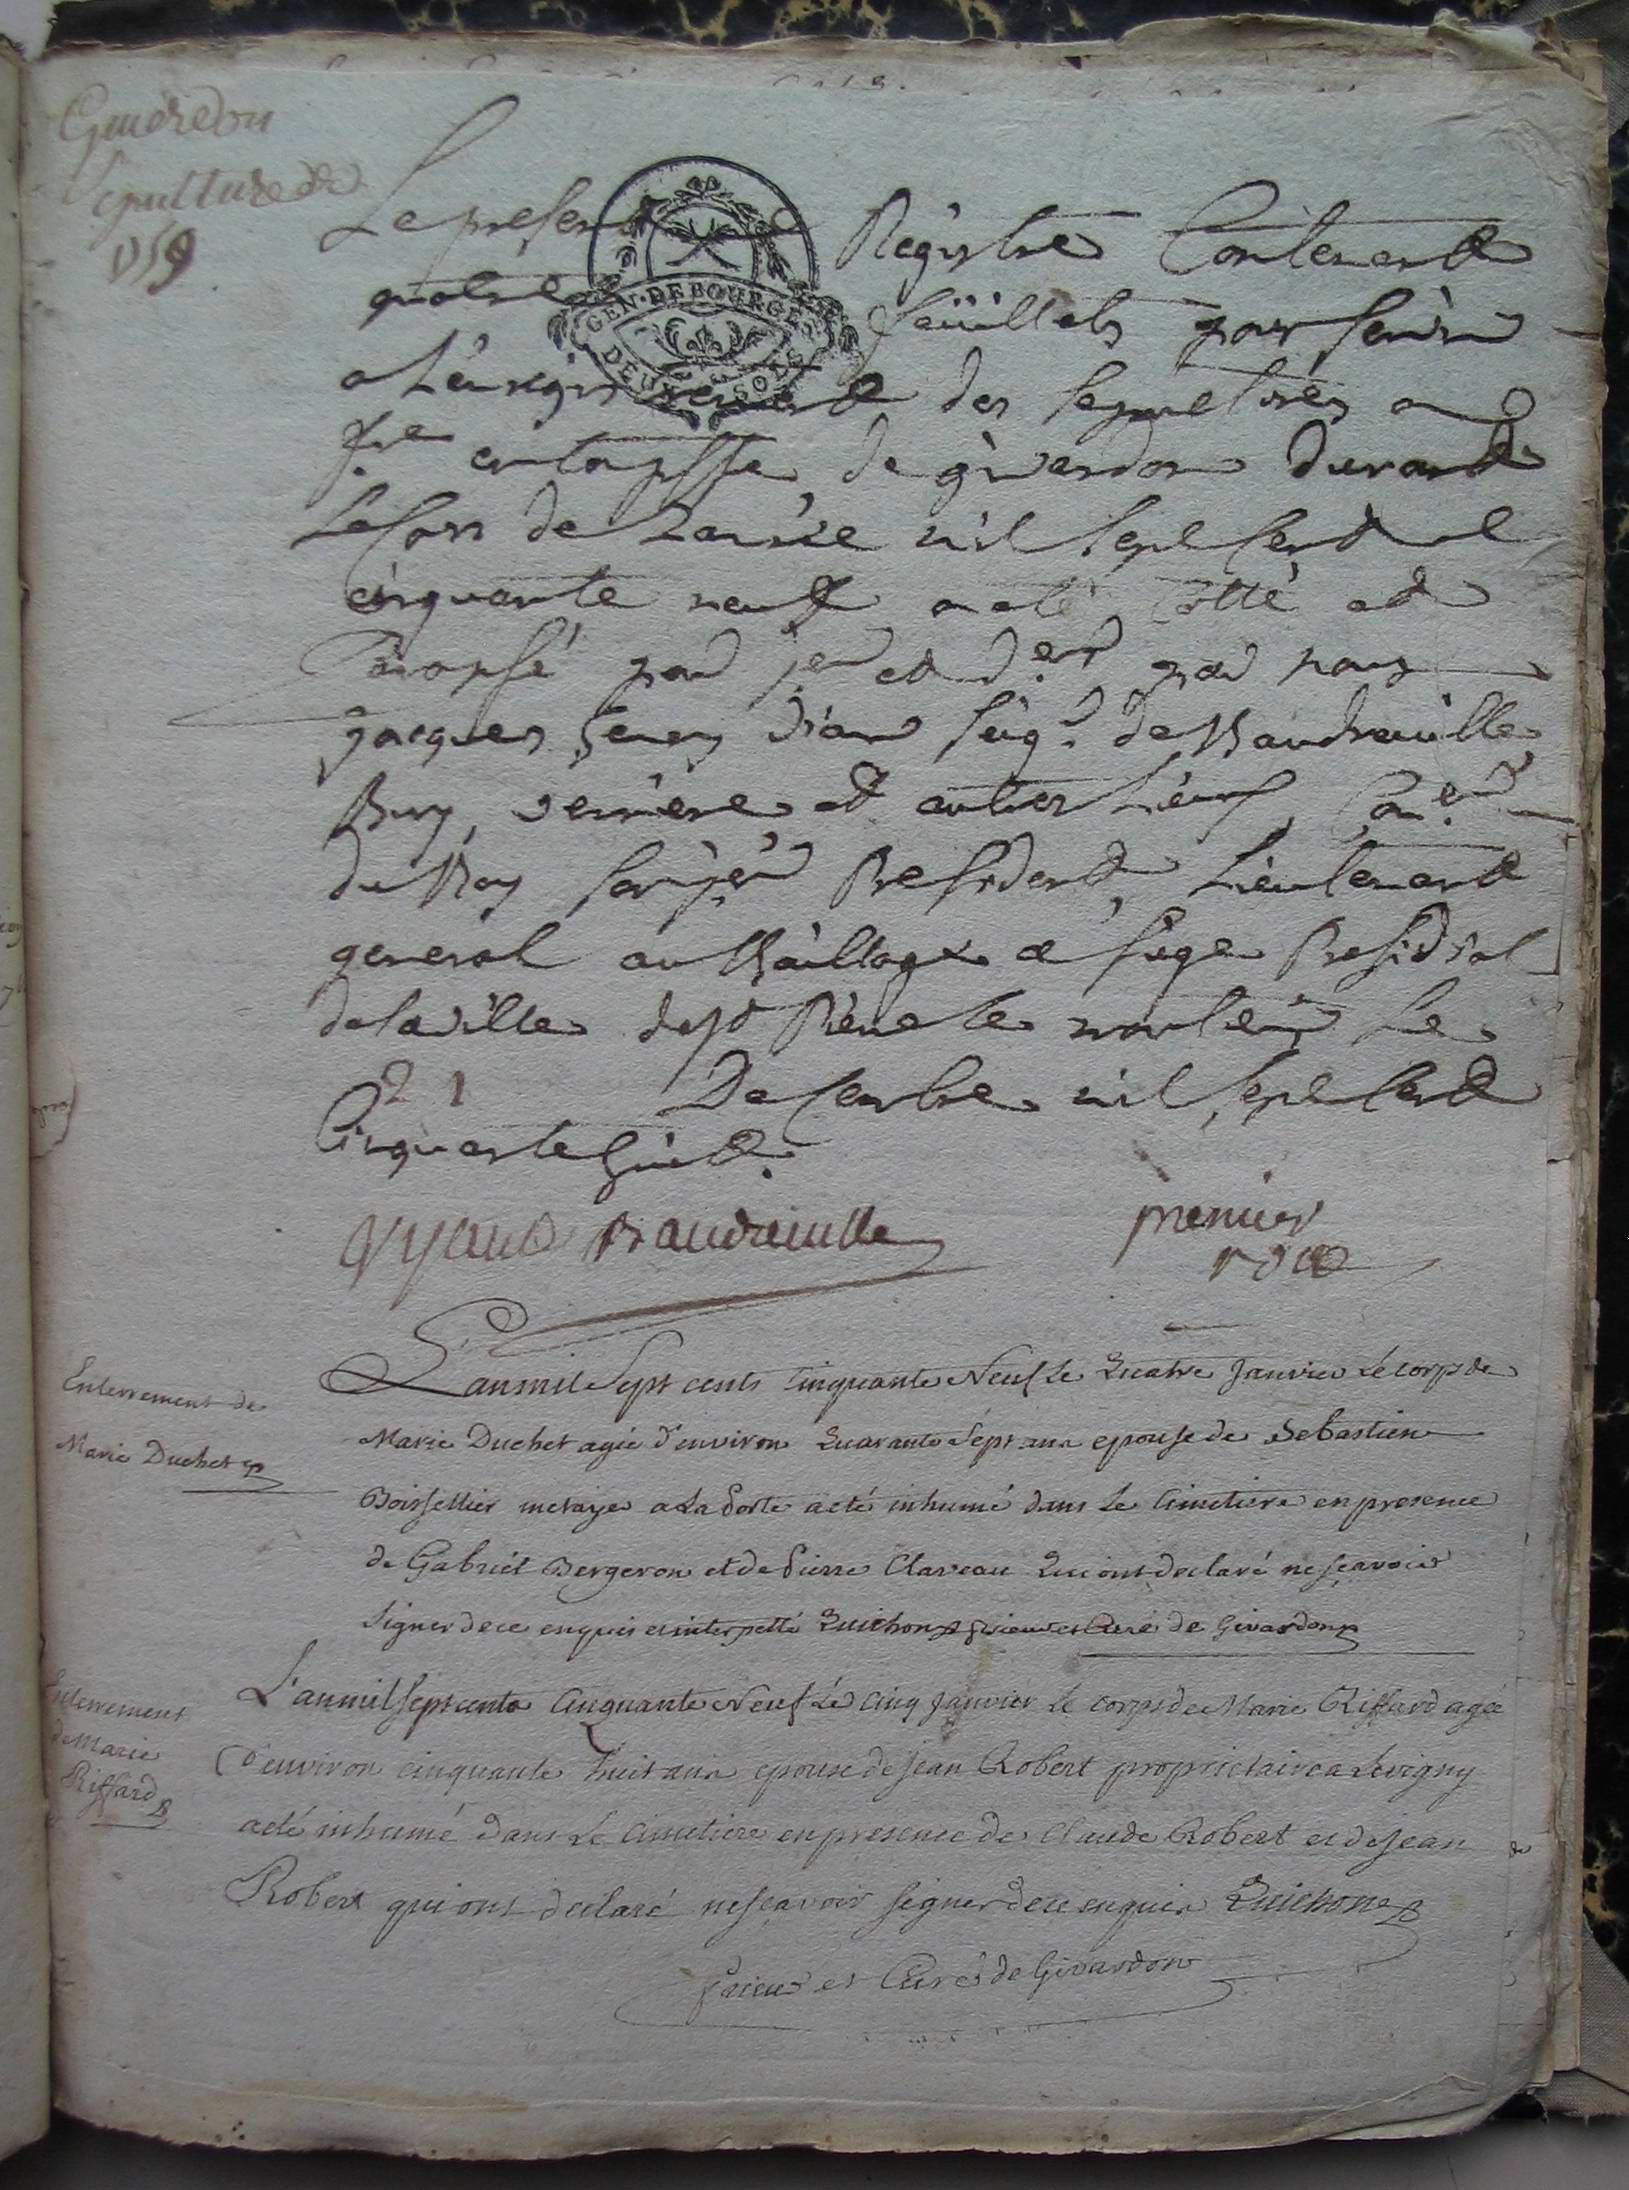 Sepulture de
1759
Le present Registre Contenant
quatre feüillets pour servir
a L'enregistrement des sepultures a
de givardon durant
Le Cours de Lannée mil sept cent
cinquante neuf a eté Cotté et
Paraphé par per et der par nous
Jacques seigr de Vaudreuille
Bury, et autres Lieux Coner
du Roy premier President, Lieutenant
general au Bailliage et siege Presidial
de la ville de st Pierre le moutier Le
21 Decembre mil sept cent
Cinquante huit.
Vaudreuille
premier
rolle
GEN. DE BOURGES
DEUX SOLS
Enterrement de
Marie Duchet
L'an mil Sept cents Cinquante Neuf Le Quatre Janvier Le corps de
Marie Duchet agée d'environ Quarante Sept ans epouse de Sebastien
Boissellier metayer a La Porte a eté inhumé dans Le Cimetiere en presence
de Gabriël Bergeron et de Pierre Claveau Qui ont declaré ne sçavoir
Signer de ce enquis et interpellé Quichon prieur et Curé de Givardon
Enterrement
de Marie
Riffard
L'an mil sept cents Cinquante Neuf Le Cinq janvier le corps de Marie Riffard agée
d'environ cinquante huit ans epouse de jean Robert proprietaire a Levigny
a eté inhumé dans Le Cimetiere en presence de Claude Robert et de jean
Robert qui ont declaré ne sçavoir signer de ce enquis Quichon
prieur et Curé de Givardon